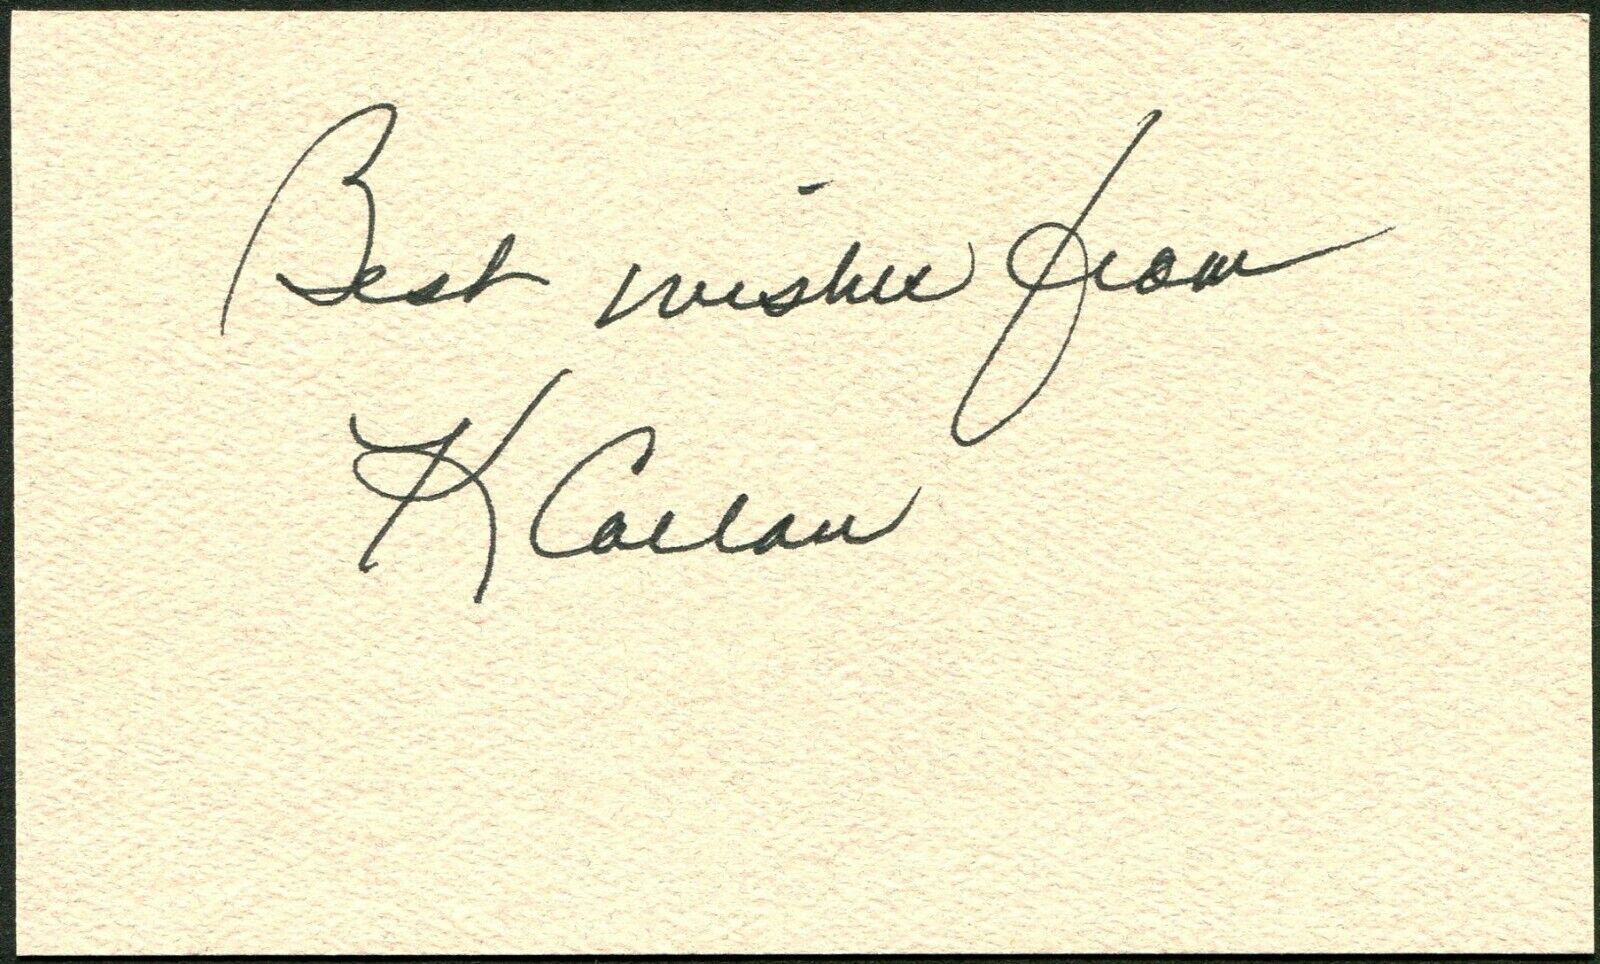 Best wishes from
K Callan